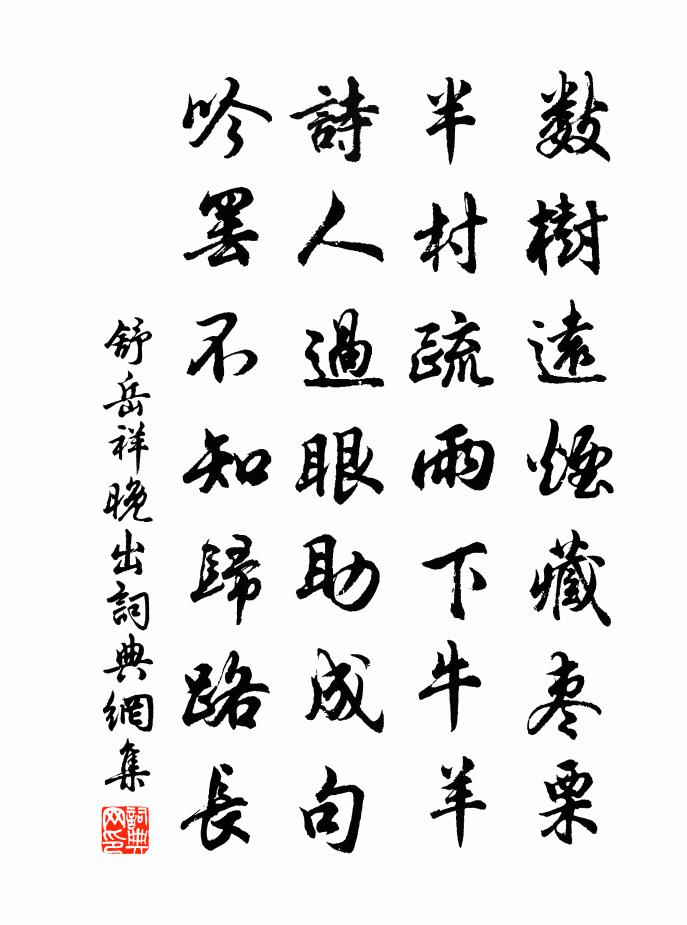 数樹遠煙藏棗栗
半村疏雨下牛羊
詩人過眼助成句
吟罷不知歸路長
舒岳祥晚出詞典網集
詞典网印